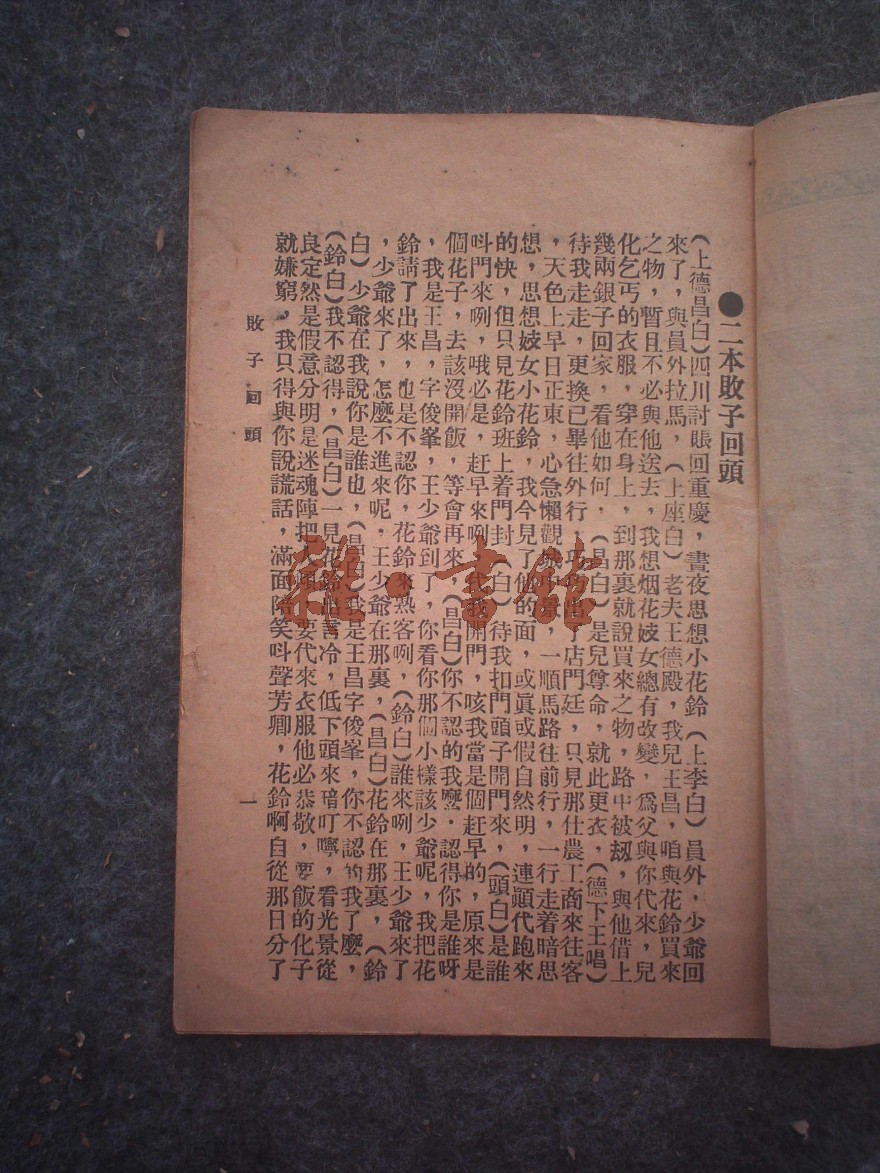 ●二本敗子回頭
(上德昌白)四川討賬回重慶,晝夜思想小花鈴(上李白)員外,少爺回
來了,與員外拉馬,(上座白)老夫王德殿,我兒王昌,咱與花鈴買來
之物,暫且不必與他送去,我想烟花妓女總有改變,爲父與你代來,兒
化乞丐的衣服,穿在身上,到那裏就說買來之物,路中被刼,與他借上
幾兩銀子回家,看他如何,(昌白)是兒尊命,就此更衣,(德下王唱)
待我走走,更換已畢往外行,出了店門廷,只見那仕農工商來往客
,天色上早日正東,心急懶觀景,一順馬路往前行,一行走着暗思
想,思想妓女小花鈴,我今見了他的面,或眞或假自然明,連顚代跑來
的快,但只見花鈴班上着門封(白)待我扣門頭子開門來,(頭白)是誰
呌門來咧,哦必是,赶早來咧,我開門,咳我當是個赶早的,原來是
個花子,去該沒開飯,等會再來,(昌白)你不認的我麽·認得你是誰呀
,我是王昌,字俊峯,王少爺到了,你看你那個小樣該少爺呢,我把花
鈴請了出來,也是不認你,花鈴來熟客咧,(鈴白)誰來咧,王少爺來了
,少爺來了,怎麽不進來呢,王少爺在那裏,(昌白)花鈴在那裏,(鈴
白)少爺在我說你是誰也,(昌白)我是王昌字俊峯,你不認的我了麽,
(鈴白)我不認得,(昌白)一見花鈴出言冷,低下頭來暗叮嚀,看光景從
良定然是假意分明是迷魂陣把要代來衣服他必恭敬,要飯的化子
就嫌窮,我只得與你說謊話,滿面陪笑呌聲芳卿,花鈴啊自從那日分了
敗子回頭
一
雜·書館